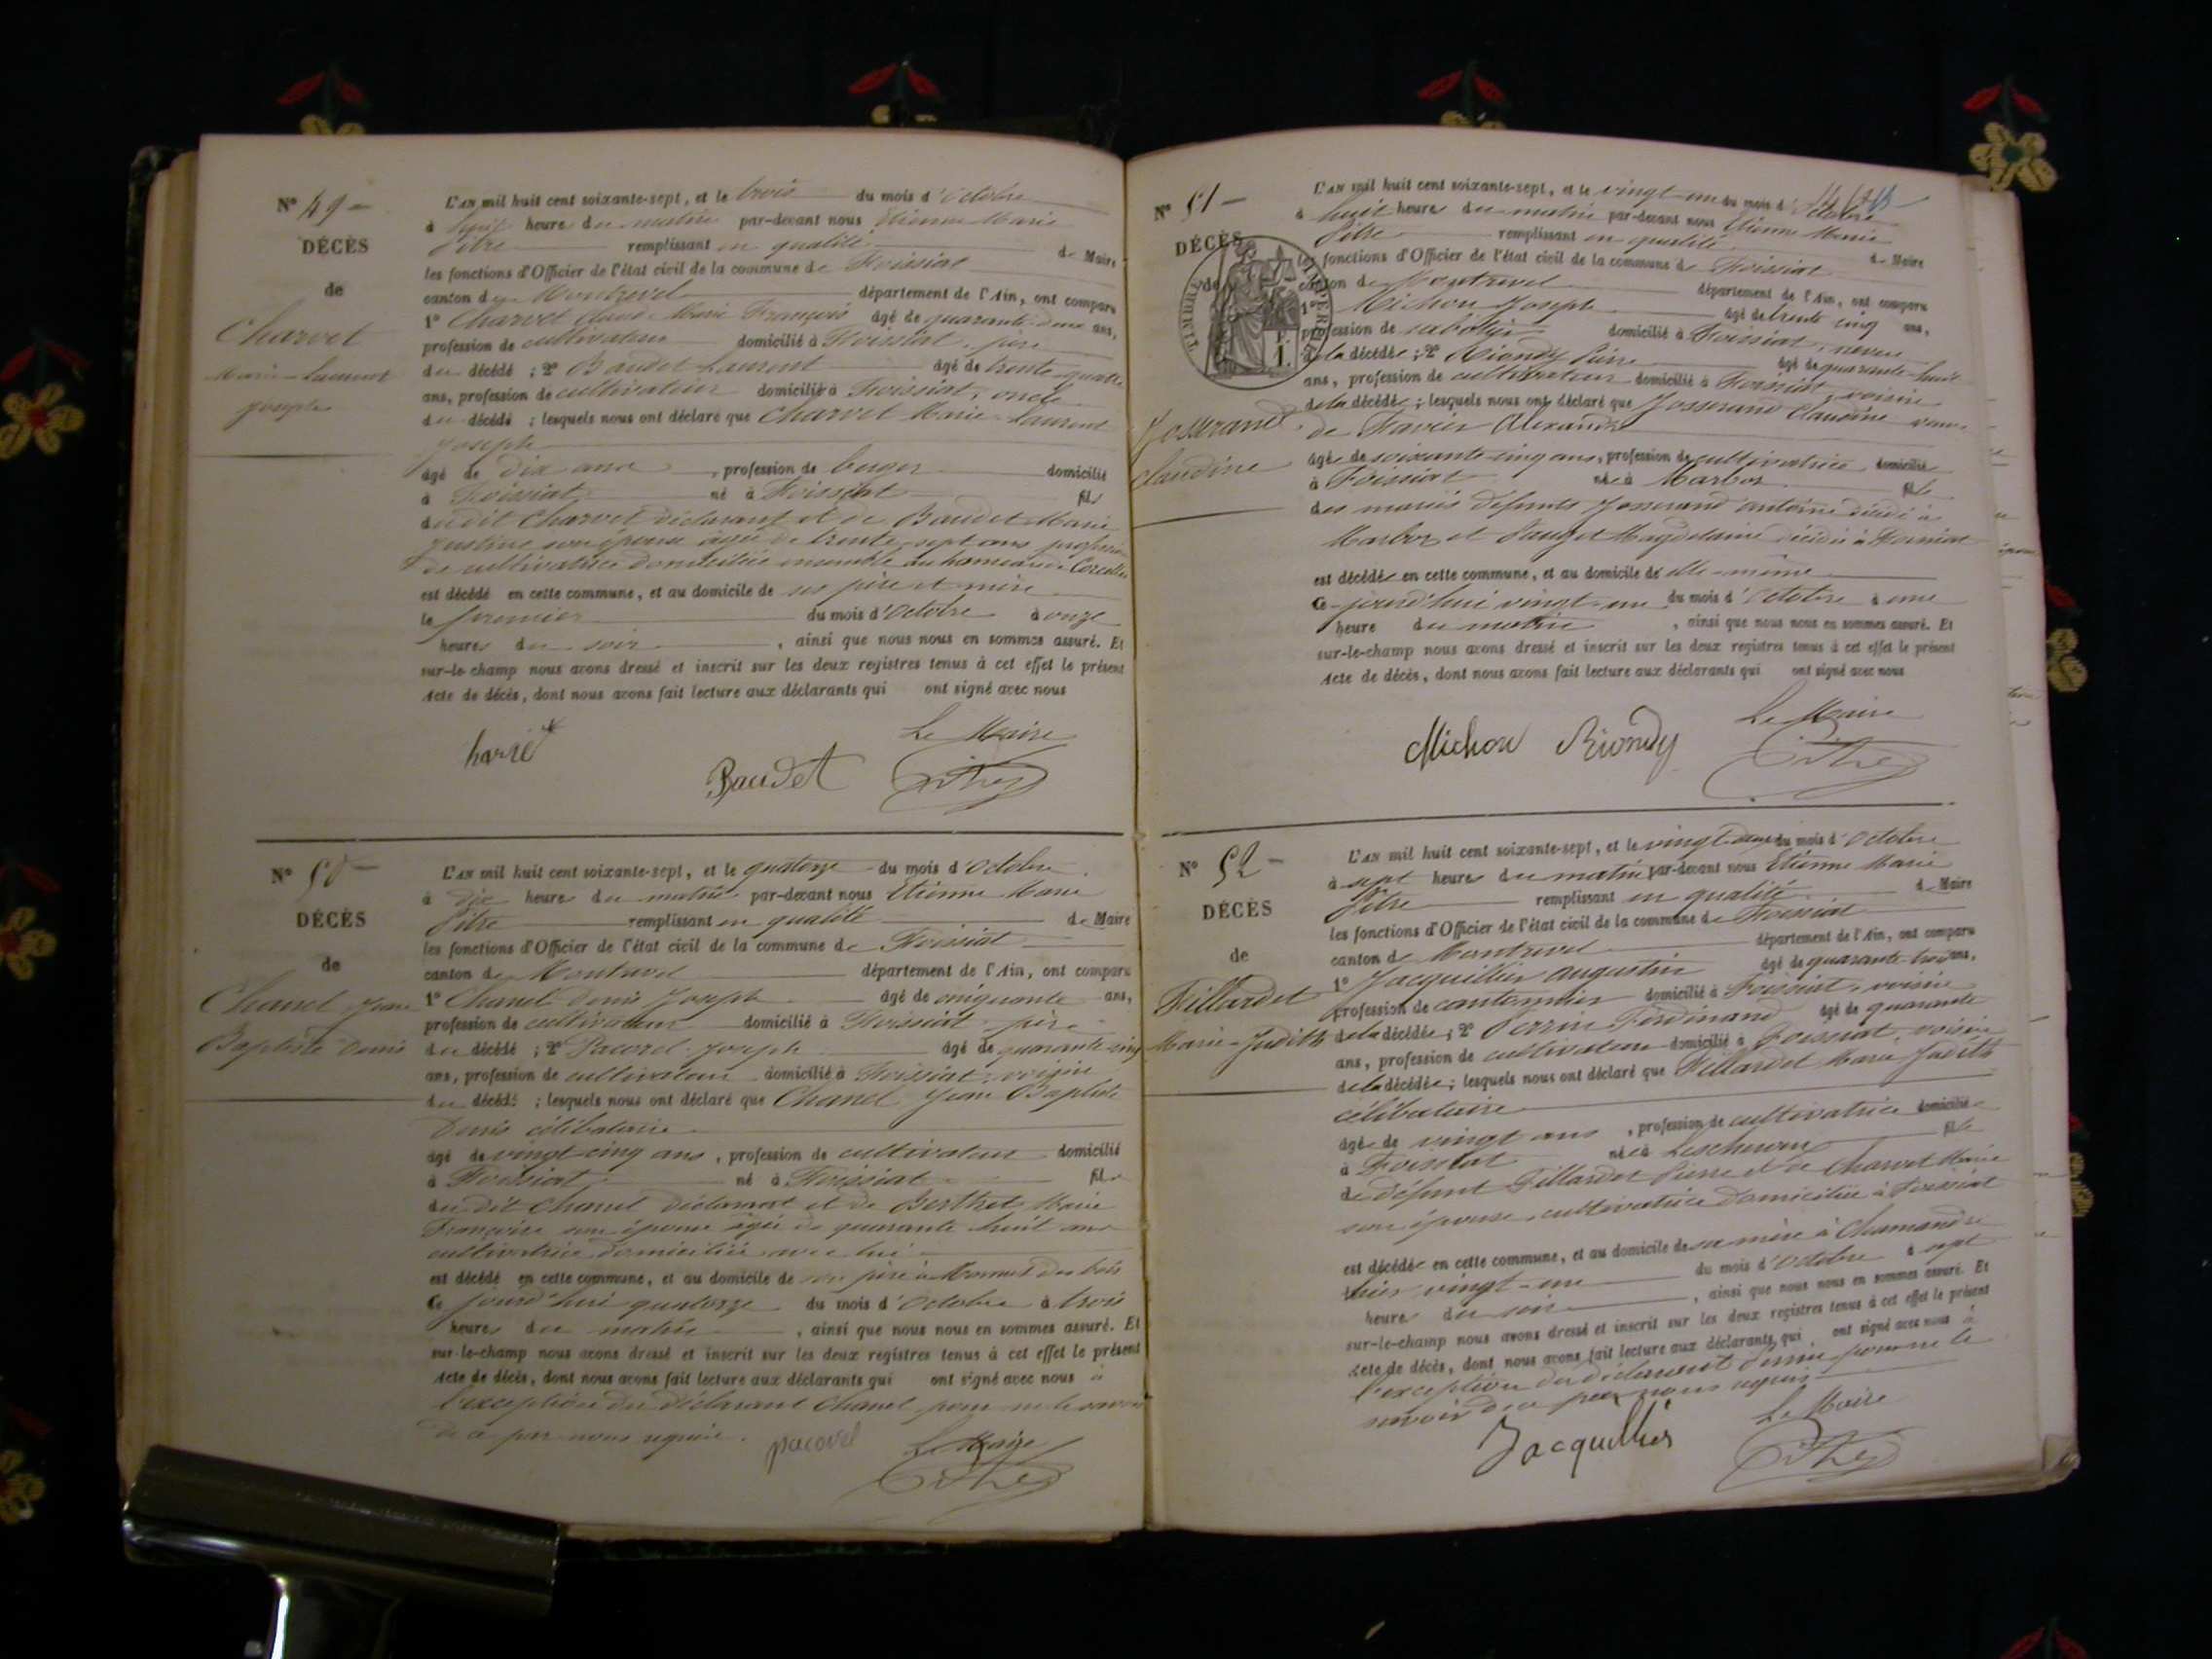 N° 49
DÉCÈS
de
Charvet
Marie-Laurent
Joseph
L'AN mil huit cent soixante-sept, et le trois du mois d'Octobre
à heures du matin par-devant nous Etienne Marie
Pitre remplissant en qualité de Maire
les fonctions d'Officier de l'état civil de la commune de Foissiat
canton de Montrevel département de l'Ain, ont comparu
1° Charvet Marie François âgé de quarante-deux ans,
profession de cultivateur domicilié à Foissiat, père
du décédé ; 2° Baudet Laurent âgé de trente-quatre
ans, profession de cultivateur domicilié à Foissiat, oncle
du décédé ; lesquels nous ont déclaré que Charvet Marie-Laurent
Joseph
âgé de dix ans, profession de berger domicilié
à Foissiat né à Foissiat fils
dudit Charvet déclarant et de Baudet Marie
Justine son épouse âgée de trente-sept ans profession
de cultivatrice domiciliée ensemble au hameau de Corcelles
est décédé en cette commune, et au domicile de ses père et mère
le premier du mois d'Octobre à onze
heures du soir, ainsi que nous nous en sommes assuré. Et
sur-le-champ nous avons dressé et inscrit sur les deux registres tenus à cet effet le présent
Acte de décès, dont nous avons fait lecture aux déclarants qui ont signé avec nous
Le Maire
Baudet Pitre
N° 50
DÉCÈS
de
Chanel Jean
Baptiste Denis
L'AN mil huit cent soixante-sept, et le quatorze du mois d'Octobre
à dix heures du matin par-devant nous Etienne Marie
Pitre remplissant en qualité de Maire
les fonctions d'Officier de l'état civil de la commune de Foissiat
canton de Montrevel département de l'Ain, ont comparu
1° Chanel Denis Joseph âgé de cinquante ans,
profession de cultivateur domicilié à Foissiat père
du décédé ; 2° Pacorel Joseph âgé de quarante-cinq
ans, profession de cultivateur domicilié à Foissiat, voisin
du décédé ; lesquels nous ont déclaré que Chanel Jean Baptiste
Denis célibataire
âgé de vingt-cinq ans, profession de cultivateur domicilié
à Foissiat né à Foissiat fils
du dit Chanel déclarant et de Berthet Marie
Françoise son épouse âgée de quarante huit ans
cultivatrice domiciliée avec lui
est décédé en cette commune, et au domicile de son père à des bois
Ce jourd'hui quatorze du mois d'Octobre à trois
heures du matin, ainsi que nous nous en sommes assuré. Et
sur-le-champ nous avons dressé et inscrit sur les deux registres tenus à cet effet le présent
Acte de décès, dont nous avons fait lecture aux déclarants qui ont signé avec nous à
l'exception du déclarant Chanel pour ne le savoir
de ce par nous requis.
pacorel Le Maire
Pitre
N° 51
DÉCÈS
de
TIMBRE IMPÉRIAL
Josserand
Claudine
L'AN mil huit cent soixante-sept, et le vingt-un du mois d'Octobre
à huit heures du matin par-devant nous Etienne Marie
Pitre remplissant en qualité de Maire
les fonctions d'Officier de l'état civil de la commune de Foissiat
canton de Montrevel département de l'Ain, ont comparu
1° Michon Joseph âgé de trente cinq ans,
profession de sabotier domicilié à Foissiat, neveu
de la décédée ; 2° Riondy Pierre âgé de quarante-huit
ans, profession de cultivateur domicilié à Foissiat, voisin
de la décédée ; lesquels nous ont déclaré que Josserand Claudine veuve
de Alexandre
âgée de soixante-cinq ans, profession de cultivatrice domiciliée
à Foissiat née à Marboz fille
des mariés défunts Josserand Antoine décédé à
Marboz et Magdelaine décédée à Foissiat
est décédée en cette commune, et au domicile de elle-même
Ce jourd'hui vingt-un du mois d'Octobre à une
heure du matin, ainsi que nous nous en sommes assuré. Et
sur-le-champ nous avons dressé et inscrit sur les deux registres tenus à cet effet le présent
Acte de décès, dont nous avons fait lecture aux déclarants qui ont signé avec nous
Le Maire
Michon Riondy Pitre
N° 52
DÉCÈS
de
Fillardet
Marie-Judith
L'AN mil huit cent soixante-sept, et le vingt-deux du mois d'Octobre
à sept heures du matin par-devant nous Etienne Marie
Pitre remplissant en qualité de Maire
les fonctions d'Officier de l'état civil de la commune de Foissiat
canton de Montrevel département de l'Ain, ont comparu
1° Jacquillier Augustin âgé de quarante-trois ans,
profession de cantonnier domicilié à Foissiat, voisin
de la décédée ; 2° Perrin Ferdinand âgé de quarante
ans, profession de cultivateur domicilié à Foissiat, voisin
de la décédée ; lesquels nous ont déclaré que Fillardet Marie Judith
célibataire
âgée de vingt ans, profession de cultivatrice domiciliée
à Foissiat née à Lescheroux fille
de défunt Fillardet Pierre et de Charvet Marie
son épouse, cultivatrice domiciliée à Foissiat
est décédée en cette commune, et au domicile de sa mère à Chamandre
hier vingt-un du mois d'Octobre à sept
heures du soir, ainsi que nous nous en sommes assuré. Et
sur-le-champ nous avons dressé et inscrit sur les deux registres tenus à cet effet le présent
Acte de décès, dont nous avons fait lecture aux déclarants qui ont signé avec nous à
l'exception du déclarant Perrin pour ne le
savoir de ce par nous requis
Le Maire
Jacquillier Pitre